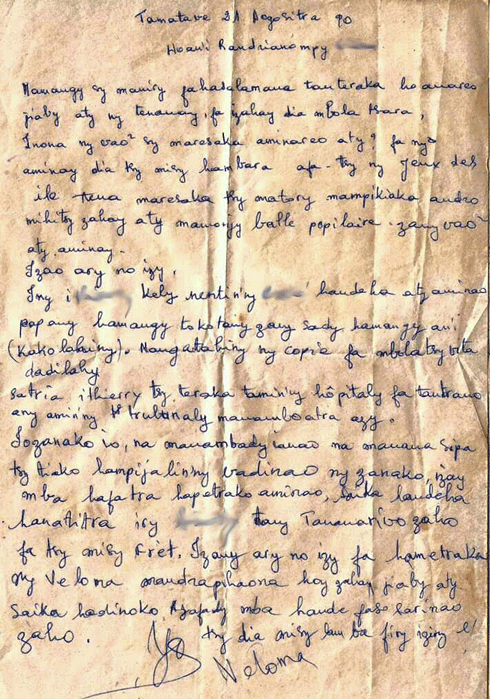 Tamatave 21 Aogositra 90
Hoan'i Randrianompy
Mamangy sy maniry fahasalamana tanteraka ho anareo
jiaby aty ny tenanay, fa zahay dia mbola tsara,
Inona ny vaovao sy maresaka aminareo aty? fa ny
aminay dia tsy misy hambara afa-tsy ny Jeux des
ile tena maresaka tsy matory mampikiaka andro
mihitsy zahay aty mamonjy balle popilaire zany vaovao
aty aminay.
Izao ary no izy.
Iny i kely nentin'ny handeha aty aminao
papany hamangy tokotany zany sady hamangy an'i
(Kakolahiny). Mangataka ny copie fa mbola tsy vita
dadilahy
satria i thierry tsy teraka tamin'ny hôpitaly fa tantrano
any amin'ny tribunaly manamboatra azy.
Izanako io, na manambady ianao na manana sipa
tsy tiako hampijalin'ny vadinao ny zanako, izay
mba hafatra hapetrako aminao, saika landeha
hanatitra isy tany Tananarivo zaho
fa tsy misy frêt. Izany ary no izy fa hametraka
ny Veloma mandrapihaona hoy zahay jiaby aty
saika hadinoko Azafady mba hande faso sarinao
zaho. tsy dia misy lamba firy iziny e!
Veloma